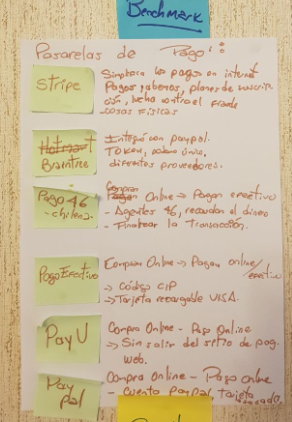 Benchmark
Pasarelas de Pago:
Stripe
Simplifica los pagos en internet
Pagos, abonos, planes de suscrip-
ción, lucha contra el fraude
-cosas físicas
Braintree
Integra con paypal.
Token, único,
diferentes proveedores.
Pago 46
- chilena.
Comprar
Online → Pagan efectivo
- Agentes 46, recaudan el dinero
- Finalizar la transacción.
PagoEfectivo
Compran Online → Pagan online/
efectivo
→ Código CIP
→ Tarjeta recargable VISA.
PayU
Compra Online - Pago Online
→ Sin salir del sitio de pag.
web.
Pay
pal
Compra Online - Pago online
- Cuenta PayPal, tarjeta